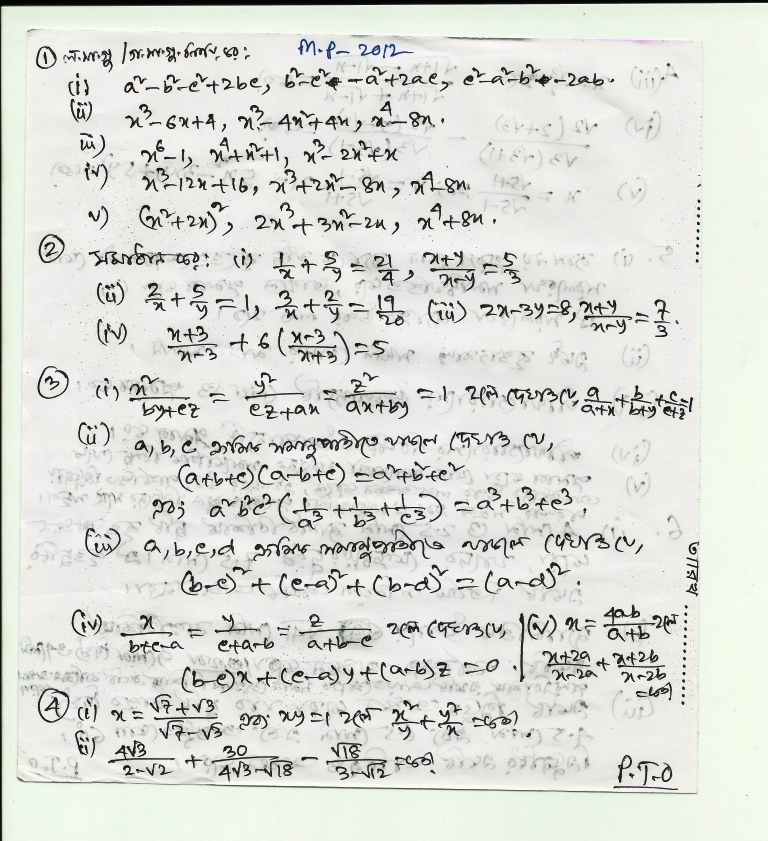 M.P- 2012
① ল.সা.গু / গ.সা.গু. নির্ণয় কর:
(i) a²-b²-c²+2bc, b²-c²-a²+2ac, c²-a²-b²-2ab.
(ii) x³-6x+4, x³-4x²+4x, x⁴-8x.
iii) x⁶-1, x⁴+x²+1, x³-2x²+x
iv) x³-12x+16, x³+2x²-8x, x⁴-8x.
v) (x²+2x)², 2x³+3x²-2x, x⁴+8x.
② সমাধান কর: (i) 1/x + 5/y = 21/4, (x+y)/(x-y) = 5/3
(ii) 2/x + 5/y = 1, 3/x + 2/y = 19/20 (iii) 2x-3y=8, (x+y)/(x-y) = 7/3.
(iv) (x+3)/(x-3) + 6((x-3)/(x+3)) = 5
③ (i) x²/(by+cz) = y²/(cz+ax) = z²/(ax+by) = 1 হলে দেখাও যে a/(a+x) + b/(b+y) + c/(c+z) = 1
(ii) a, b, c ক্রমিক সমানুপাতীতে থাকলে দেখাও যে,
(a+b+c)(a-b+c) = a²+b²+c²
এবং a²b²c²(1/a³ + 1/b³ + 1/c³) = a³+b³+c³,
(iii) a, b, c, d ক্রমিক সমানুপাতীতে থাকলে দেখাও যে,
(b-c)² + (c-a)² + (b-d)² = (a-d)².
(iv) x/(b+c-a) = y/(c+a-b) = z/(a+b-c) হলে দেখাও যে,
(b-c)x + (c-a)y + (a-b)z = 0.
(v) x = 4ab/(a+b) হলে
(x+2a)/(x-2a) + (x+2b)/(x-2b)
= কত
④ (i) x = (√7+√3)/(√7-√3) এবং xy=1 হলে x²/y + y²/x = কত.
(ii) 4√3/(2-√2) + 30/(4√3-√18) - √18/(3-√12) = কত
P.T.O